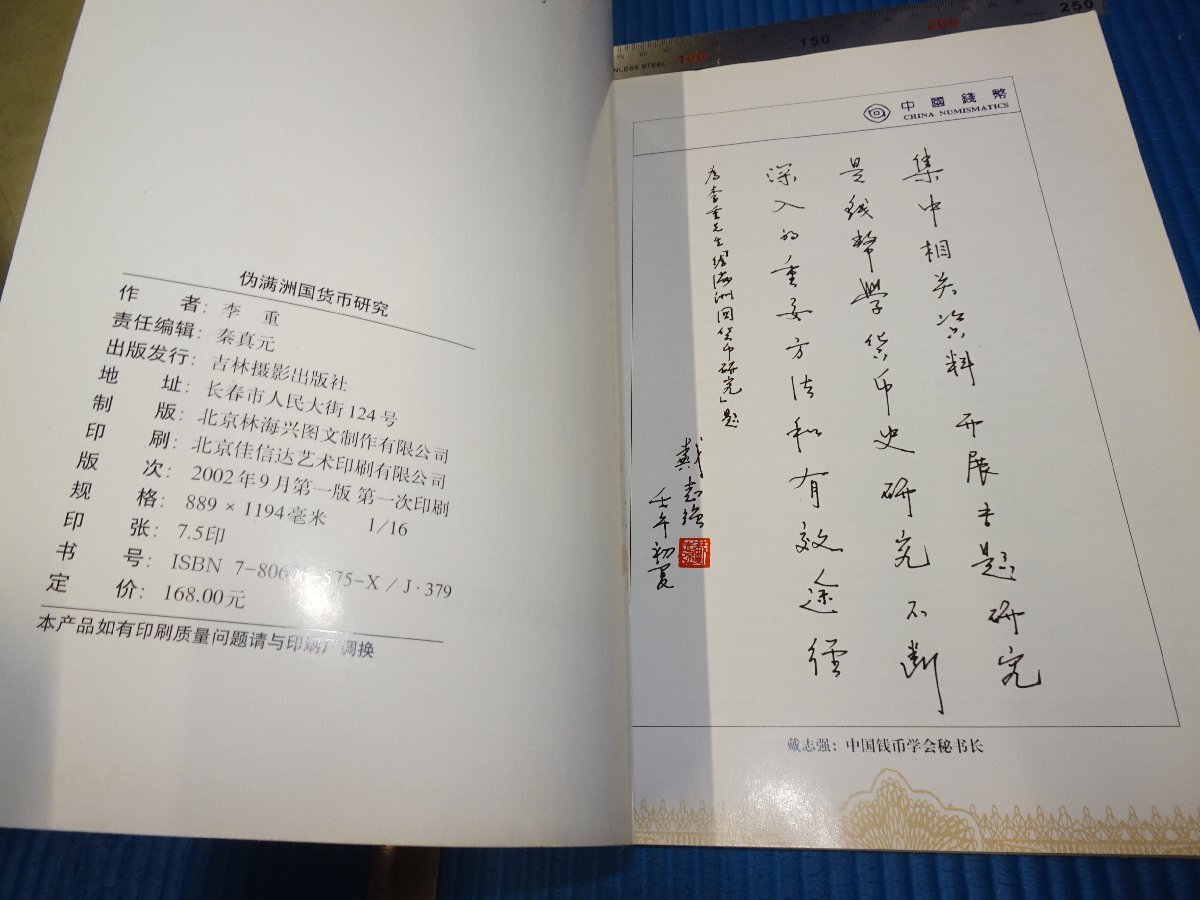 伪满洲国货币研究
作　者：李　重
责任编辑：秦真元
出版发行：吉林摄影出版社
地　址：长春市人民大街124号
制　版：北京林海兴图文制作有限公司
印　刷：北京佳信达艺术印刷有限公司
版　次：2002年9月第一版 第一次印刷
规　格：889 × 1194毫米　1/16
印　张：7.5印
书　号：ISBN 7-806 75-X / J·379
定　价：168.00元
本产品如有印刷质量问题请与印刷厂调换
STAINLESS STEEL
100 150 200 250
中國錢幣
CHINA NUMISMATICS
集中相关资料 开展专题研究
是钱幣學货币史研究不断
深入的重要方法和有效途径
为李重先生《伪满洲国货币研究》题
戴志强
壬午初夏
戴志强：中国钱币学会秘书长